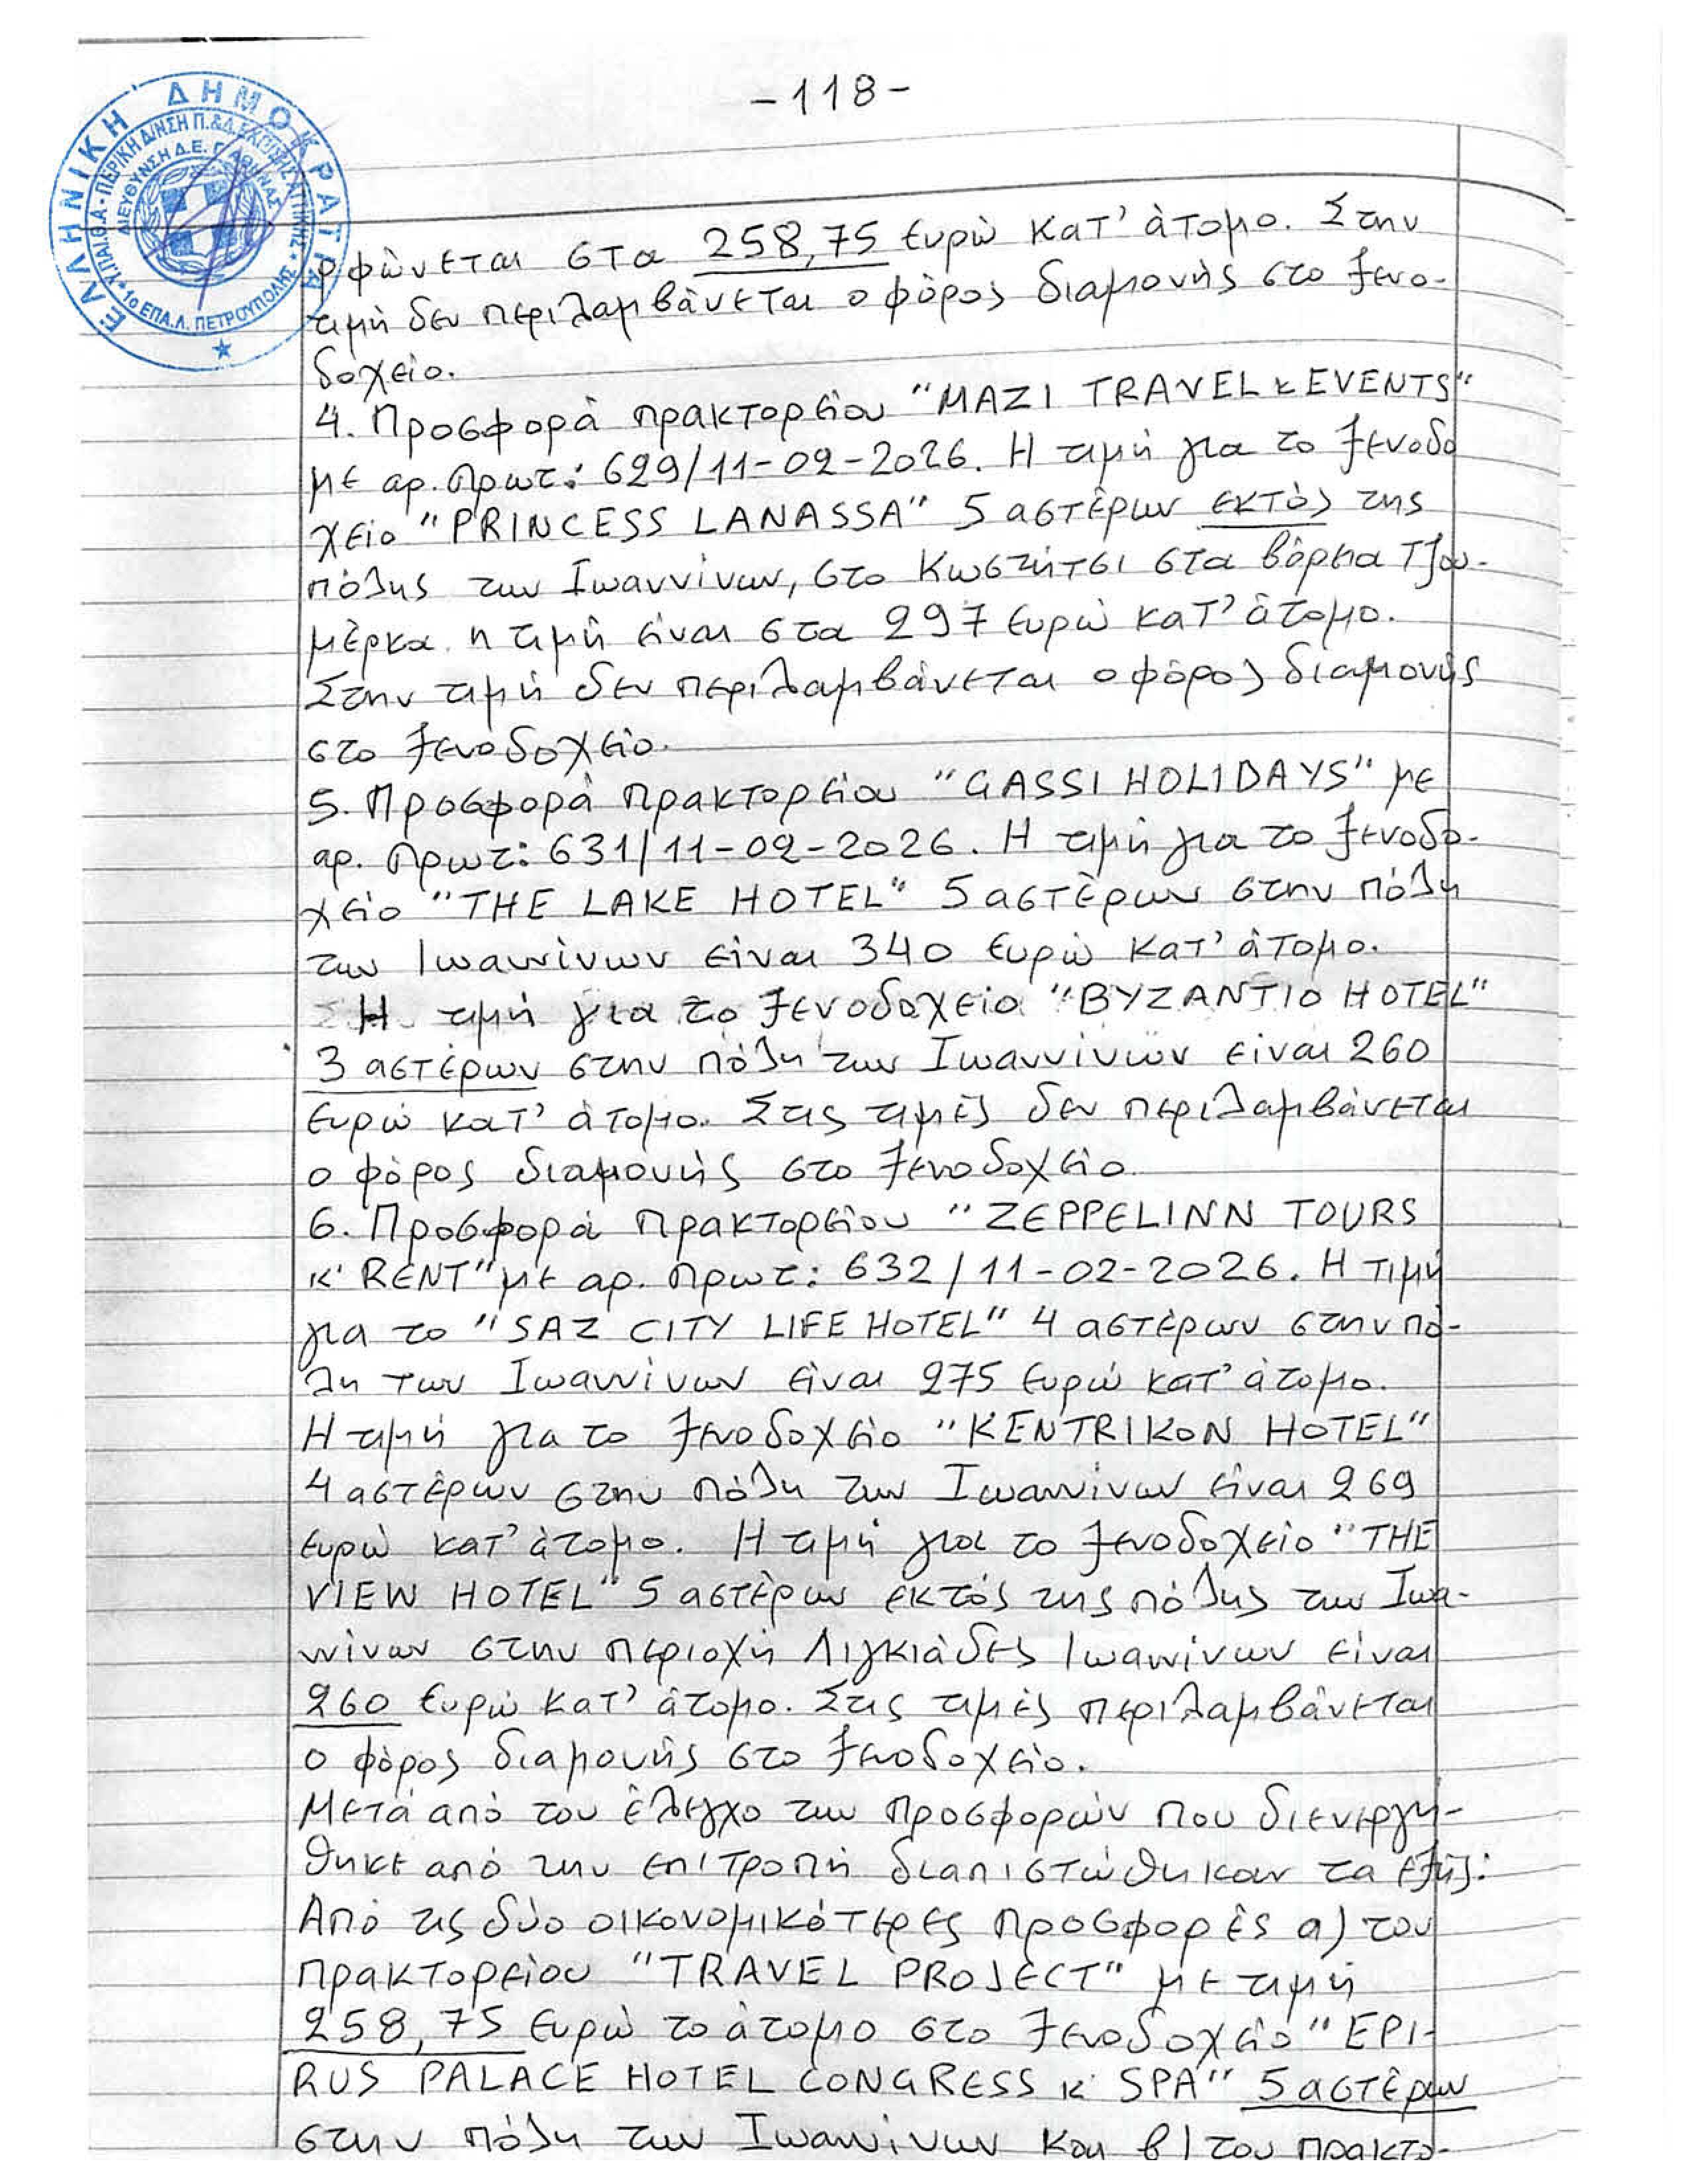 -118-
ΕΛΛΗΝΙΚΗ ΔΗΜΟΚΡΑΤΙΑ
1ο ΕΠΑ.Λ. ΠΕΤΡΟΥΠΟΛΗΣ
ρφώνεται στα 258,75 ευρώ κατ' άτομο. Στην
τιμή δεν περιλαμβάνεται ο φόρος διαμονής στο ξενο-
δοχείο.
4. Προσφορά πρακτορείου "MAZI TRAVEL & EVENTS"
με αρ. πρωτ: 629/11-02-2026. Η τιμή για το ξενοδο
χείο "PRINCESS LANASSA" 5 αστέρων εκτός της
πόλης των Ιωαννίνων, στο Κωστήτσι στα βόρεια Τζου-
μέρκα. η τιμή είναι στα 297 ευρώ κατ' άτομο.
Στην τιμή δεν περιλαμβάνεται ο φόρος διαμονής
στο ξενοδοχείο.
5. Προσφορά πρακτορείου "GASSI HOLIDAYS" με
αρ. πρωτ: 631/11-02-2026. Η τιμή για το ξενοδο-
χείο "THE LAKE HOTEL" 5 αστέρων στην πόλη
των Ιωαννίνων είναι 340 ευρώ κατ' άτομο.
Η τιμή για το ξενοδοχείο "BYZANTIO HOTEL"
3 αστέρων στην πόλη των Ιωαννίνων είναι 260
ευρώ κατ' άτομο. Στις τιμές δεν περιλαμβάνεται
ο φόρος διαμονής στο ξενοδοχείο.
6. Προσφορά πρακτορείου "ZEPPELINN TOURS
κ' RENT" με αρ. πρωτ: 632/11-02-2026. Η τιμή
για το "SAZ CITY LIFE HOTEL" 4 αστέρων στην πό-
λη των Ιωαννίνων είναι 275 ευρώ κατ' άτομο.
Η τιμή για το ξενοδοχείο "KENTRIKON HOTEL"
4 αστέρων στην πόλη των Ιωαννίνων είναι 269
ευρώ κατ' άτομο. Η τιμή για το ξενοδοχείο "THE
VIEW HOTEL" 5 αστέρων εκτός της πόλης των Ιωα-
ννίνων στην περιοχή Λιγκιάδες Ιωαννίνων είναι
260 ευρώ κατ' άτομο. Στις τιμές περιλαμβάνεται
ο φόρος διαμονής στο ξενοδοχείο.
Μετά από τον έλεγχο των προσφορών που διενεργή-
θηκε από την επιτροπή διαπιστώθηκαν τα εξής:
Από τις δύο οικονομικότερες προσφορές α) του
πρακτορείου "TRAVEL PROJECT" με τιμή
258,75 ευρώ το άτομο στο ξενοδοχείο "EPI-
RUS PALACE HOTEL CONGRESS κ' SPA" 5 αστέρων
στην πόλη των Ιωαννίνων και β) του πρακτο-